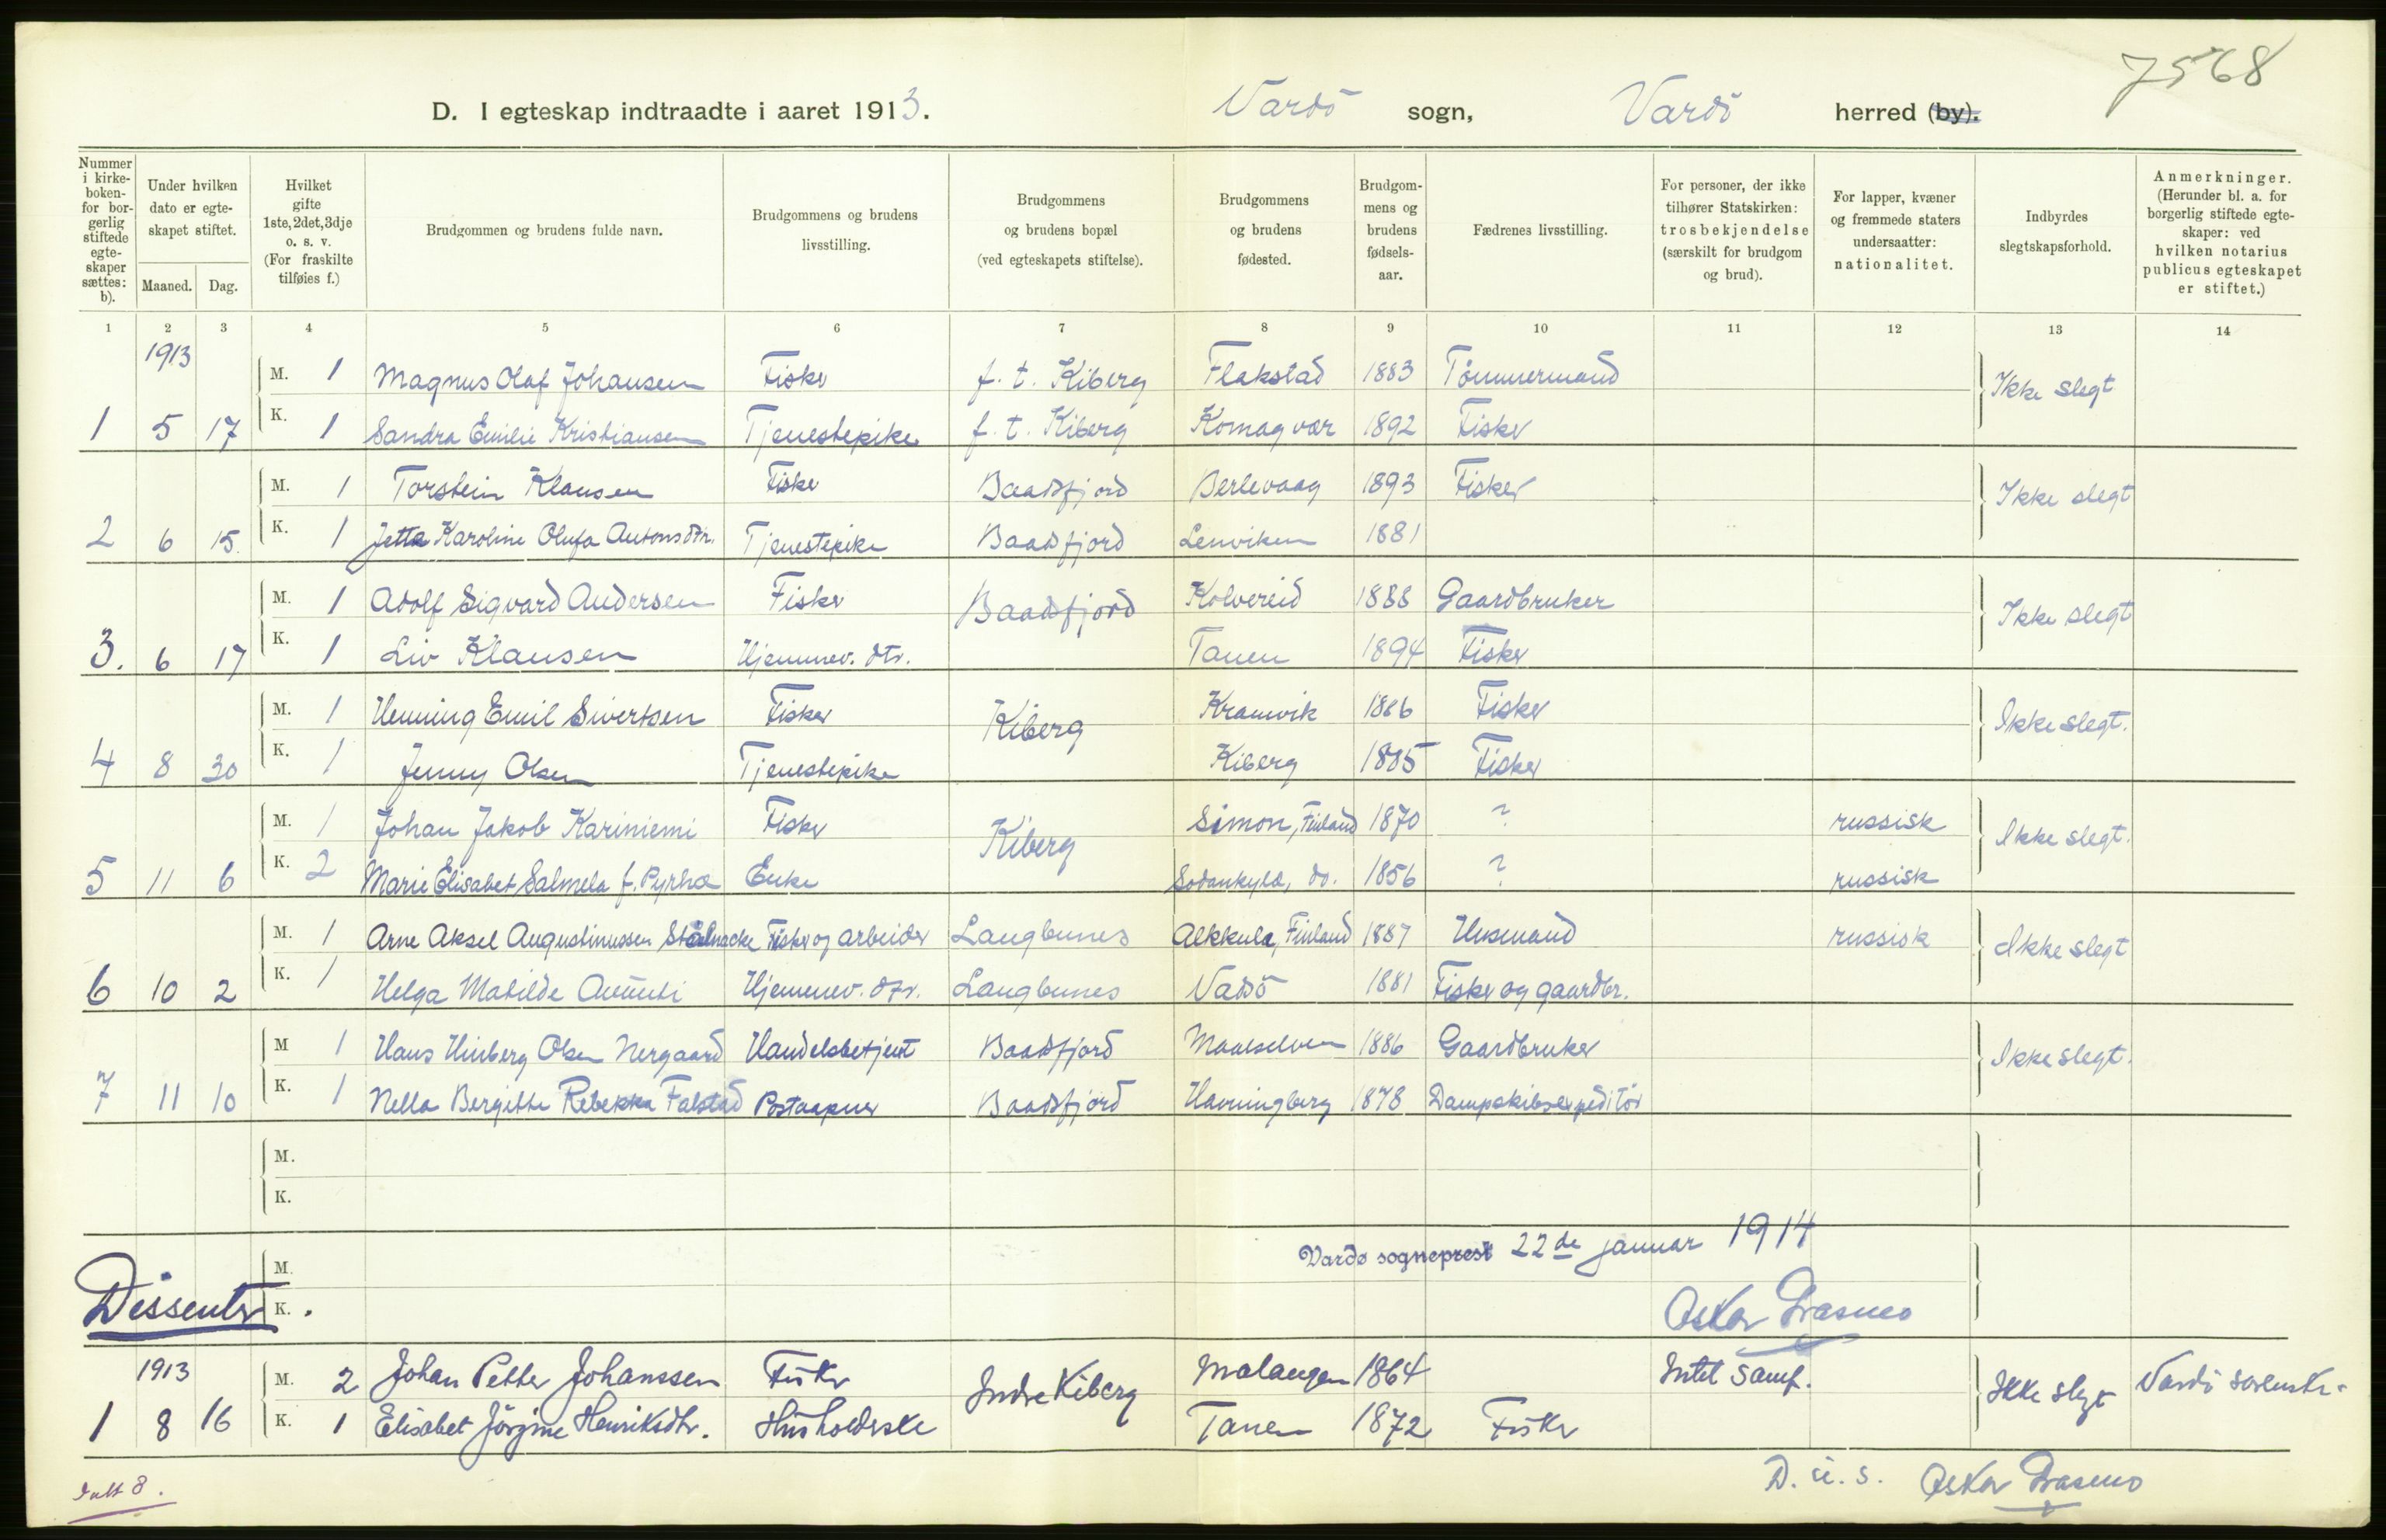 7568
D. I egteskap indtraadte i aaret 1913. Vardö sogn, Vardö herred (by).
Nummer i kirkeboken- for borgerlig stiftede egteskaper sættes: b).
Under hvilken dato er egteskapet stiftet.
Maaned. Dag.
Hvilket gifte 1ste, 2det, 3dje o. s. v. (For fraskilte tilføies f.)
Brudgommen og brudens fulde navn.
Brudgommens og brudens livsstilling.
Brudgommens og brudens bopæl (ved egteskapets stiftelse).
Brudgommens og brudens fødested.
Brudgommens og brudens fødselsaar.
Fædrenes livsstilling.
For personer, der ikke tilhører Statskirken: trosbekjendelse (særskilt for brudgom og brud).
For lapper, kvæner og fremmede staters undersaatter: nationalitet.
Indbyrdes slegtskapsforhold.
Anmerkninger. (Herunder bl. a. for borgerlig stiftede egteskaper: ved hvilken notarius publicus egteskapet er stiftet.)
1 2 3 4 5 6 7 8 9 10 11 12 13 14
1913
M. 1 Magnus Olaf Johansen Fisker f. t. Kiberg Flakstad 1883 Tömmermand Ikke slegt
1 5 17 K. 1 Sandra Emilie Kristiansen Tjenestepike f. t. Kiberg Komagvær 1892 Fisker
M. 1 Torstein Klausen Fisker Baadsfjord Berlevaag 1893 Fisker Ikke slegt
2 6 15. K. 1 Jetta Karoline Olufa Antonsdtr. Tjenestepike Baadsfjord Lenviken 1881
M. 1 Adolf Sigvard Andersen Fisker Baadsfjord Kolvereid 1888 Gaardbruker Ikke slegt
3. 6 17 K. 1 Liv Klausen Hjemmev. dtr. Tanen 1894 Fisker
M. 1 Henning Emil Sivertsen Fisker Kiberg Kramvik 1886 Fisker Ikke slegt.
4 8 30 K. 1 Jenny Olsen Tjenestepike Kiberg 1885 Fisker
M. 1 Johan Jakob Kariniemi Fisker Kiberg Simon, Finland 1870 ? russisk Ikke slegt.
5 11 6 K. 2 Marie Elisabet Salmela f. Pyrhæ Enke Sodankylä, do. 1856 ? russisk
M. 1 Arne Aksel Augustinussen Stålnacke Fisker og arbeider Langbunes Alkkula, Finland 1887 Husmand russisk Ikke slegt
6 10 2 K. 1 Helga Matilde Aunti Hjemmev. dtr. Langbunes Vadsö 1881 Fisker og gaardbr.
M 1 Hans Hinberg Olsen Nergaard Handelsbetjent Baadsfjord Maalselven 1886 Gaardbruker Ikke slegt.
7 11 10 K. 1 Nella Bergitte Rebekka Falstad Postaapner Baadsfjord Havningberg 1878 Dampskibsexpeditör
M.
K.
Vardø sogneprest 22de januar 1914
M.
Dissenter K.
Oskar Brasmo
1913 M. 2 Johan Petter Johanssen Fisker Indre Kiberg Malangen 1864 Intet samf. Ikke slegt Vardö sorenskr.
1 8 16 K. 1 Elisabet Jörgine Henriksdtr. Husholderske Tanen 1872 Fisker
D. u. s. Oskar Brasmo
Ialt 8.